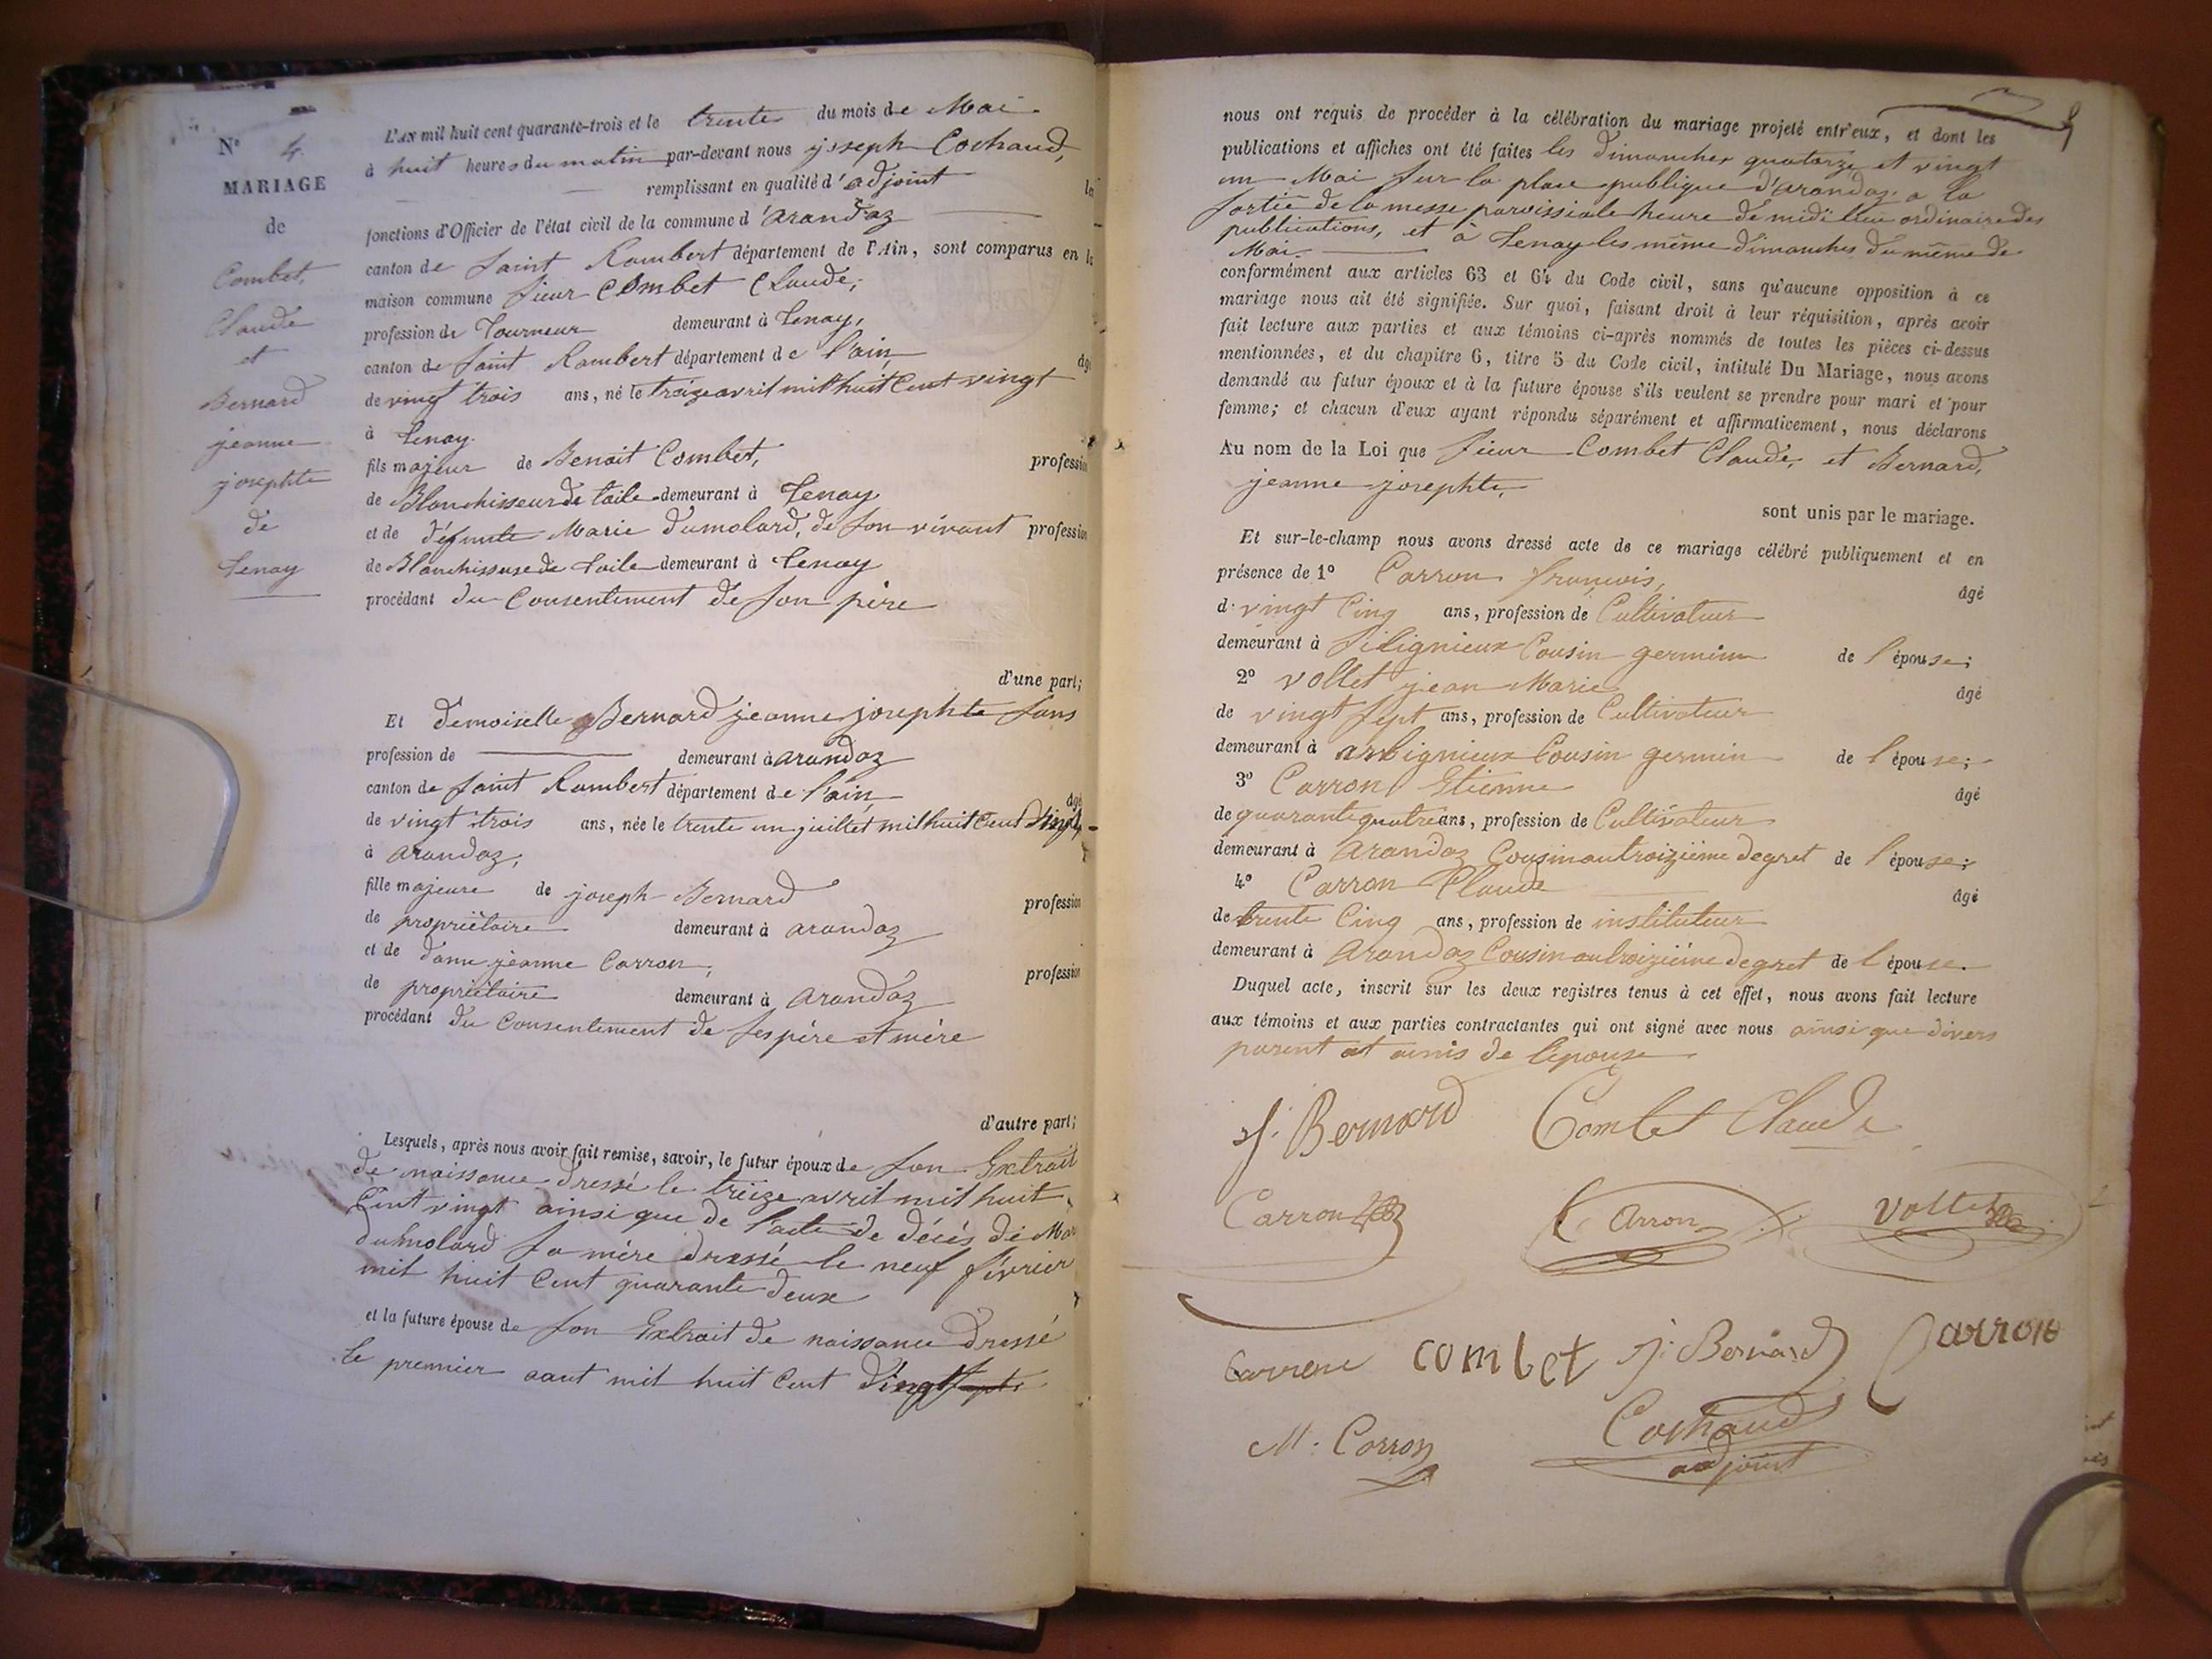 N° 4
MARIAGE
de
Combet,
Claude
et
Bernard
jeanne
josephte
de
Tenay
L'AN mil huit cent quarante-trois et le trente du mois de Mai
à huit heures du matin par-devant nous joseph Cochaud,
remplissant en qualité d'adjoint les
fonctions d'Officier de l'état civil de la commune d'arandaz
canton de saint Rambert département de l'Ain, sont comparus en la
maison commune sieur Combet Claude,
profession de Tourneur demeurant à Tenay,
canton de saint Rambert département de l'ain, âgé
de vingt trois ans, né le treize avril mil huit cent vingt
à Tenay.
fils majeur de Benoit Combet, profession
de Blanchisseur de toile demeurant à Tenay
et de défunte Marie Dumolard, de son vivant profession
de Blanchisseuse de toile demeurant à Tenay
procédant du Consentement de son père
d'une part;
Et demoiselle Bernard jeanne josephte sans
profession de demeurant à arandaz
canton de saint Rambert département de l'ain, âgé
de vingt trois ans, née le trente un juillet mil huit cent vingt
à arandaz,
fille majeure de joseph Bernard profession
de propriètaire demeurant à arandaz
et de dame jeanne Carron, profession
de propriètaire demeurant à arandaz
procédant du Consentement de ses père et mère
d'autre part;
Lesquels, après nous avoir fait remise, savoir, le futur époux de son Extrait
de naissance dressé le treize avril mil huit
Cent vingt ainsi que de l'acte de décès de Mar
dumolard sa mère dressé le neuf février
mil huit Cent quarante deux
et la future épouse de son Extrait de naissance dressé
le premier aout mil huit Cent vingt
nous ont requis de procéder à la célébration du mariage projeté entr'eux, et dont les
publications et affiches ont été faites les dimanches quatorze et vingt
un Mai sur la place publique d'arandaz a la
sortie de la messe paroissiale heure de midi lieu ordinaire des
publications, et à Tenay les même dimanches du même de
Mai.
conformément aux articles 63 et 64 du Code civil, sans qu'aucune opposition à ce
mariage nous ait été signifiée. Sur quoi, faisant droit à leur réquisition, après avoir
fait lecture aux parties et aux témoins ci-après nommés de toutes les pièces ci-dessus
mentionnées, et du chapitre 6, titre 5 du Code civil, intitulé Du Mariage, nous avons
demandé au futur époux et à la future épouse s'ils veulent se prendre pour mari et pour
femme; et chacun d'eux ayant répondu séparément et affirmativement, nous déclarons
Au nom de la Loi que sieur Combet Claude, et Bernard,
jeanne josephte,
sont unis par le mariage.
Et sur-le-champ nous avons dressé acte de ce mariage célébré publiquement et en
présence de 1° Carron françois, âgé
de vingt Cinq ans, profession de Cultivateur
demeurant à Silignieux Cousin germin de l'épouse;
2° vollet jean Marie âgé
de vingt sept ans, profession de Cultivateur
demeurant à arbignieux Cousin germin de l'épouse;
3° Carron Etienne âgé
de quarante quatre ans, profession de Cultivateur
demeurant à Arandaz Cousin au troizième degret de l'épouse;
4° Carron Claude âgé
de trente Cinq ans, profession de instituteur
demeurant à Arandaz Cousin au troizième degret de l'épouse.
Duquel acte, inscrit sur les deux registres tenus à cet effet, nous avons fait lecture
aux témoins et aux parties contractantes qui ont signé avec nous ainsi que divers
parent et amis de l'épouse
j. Bernard Combet Claude
Carron Carron vollet
Carron combet j. Bernard Carron
M. Carron Cochaud
adjoint